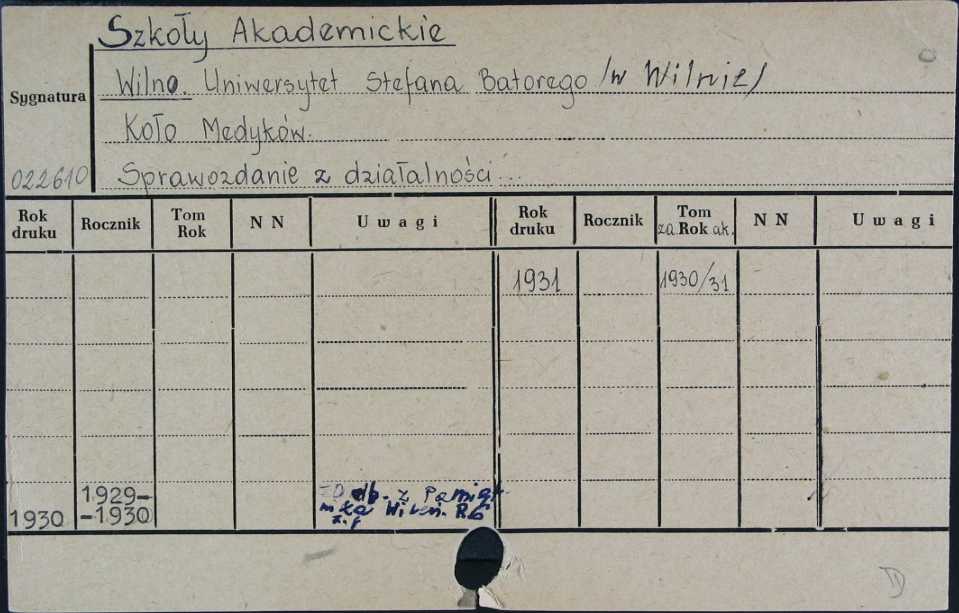 Szkoły Akademickie
Wilno. Uniwersytet Stefana Batorego /w Wilnie/
Sygnatura
Koło Medyków.
022610 Sprawozdanie z działalności...
Rok druku Rocznik Tom Rok N N Uwagi Rok druku Rocznik Tom za Rok ak. N N Uwagi
1931 1930/31
1930 1929-
-1930
Odb. z Pamięt-
nika Wileń. R. 6
z. 1
D